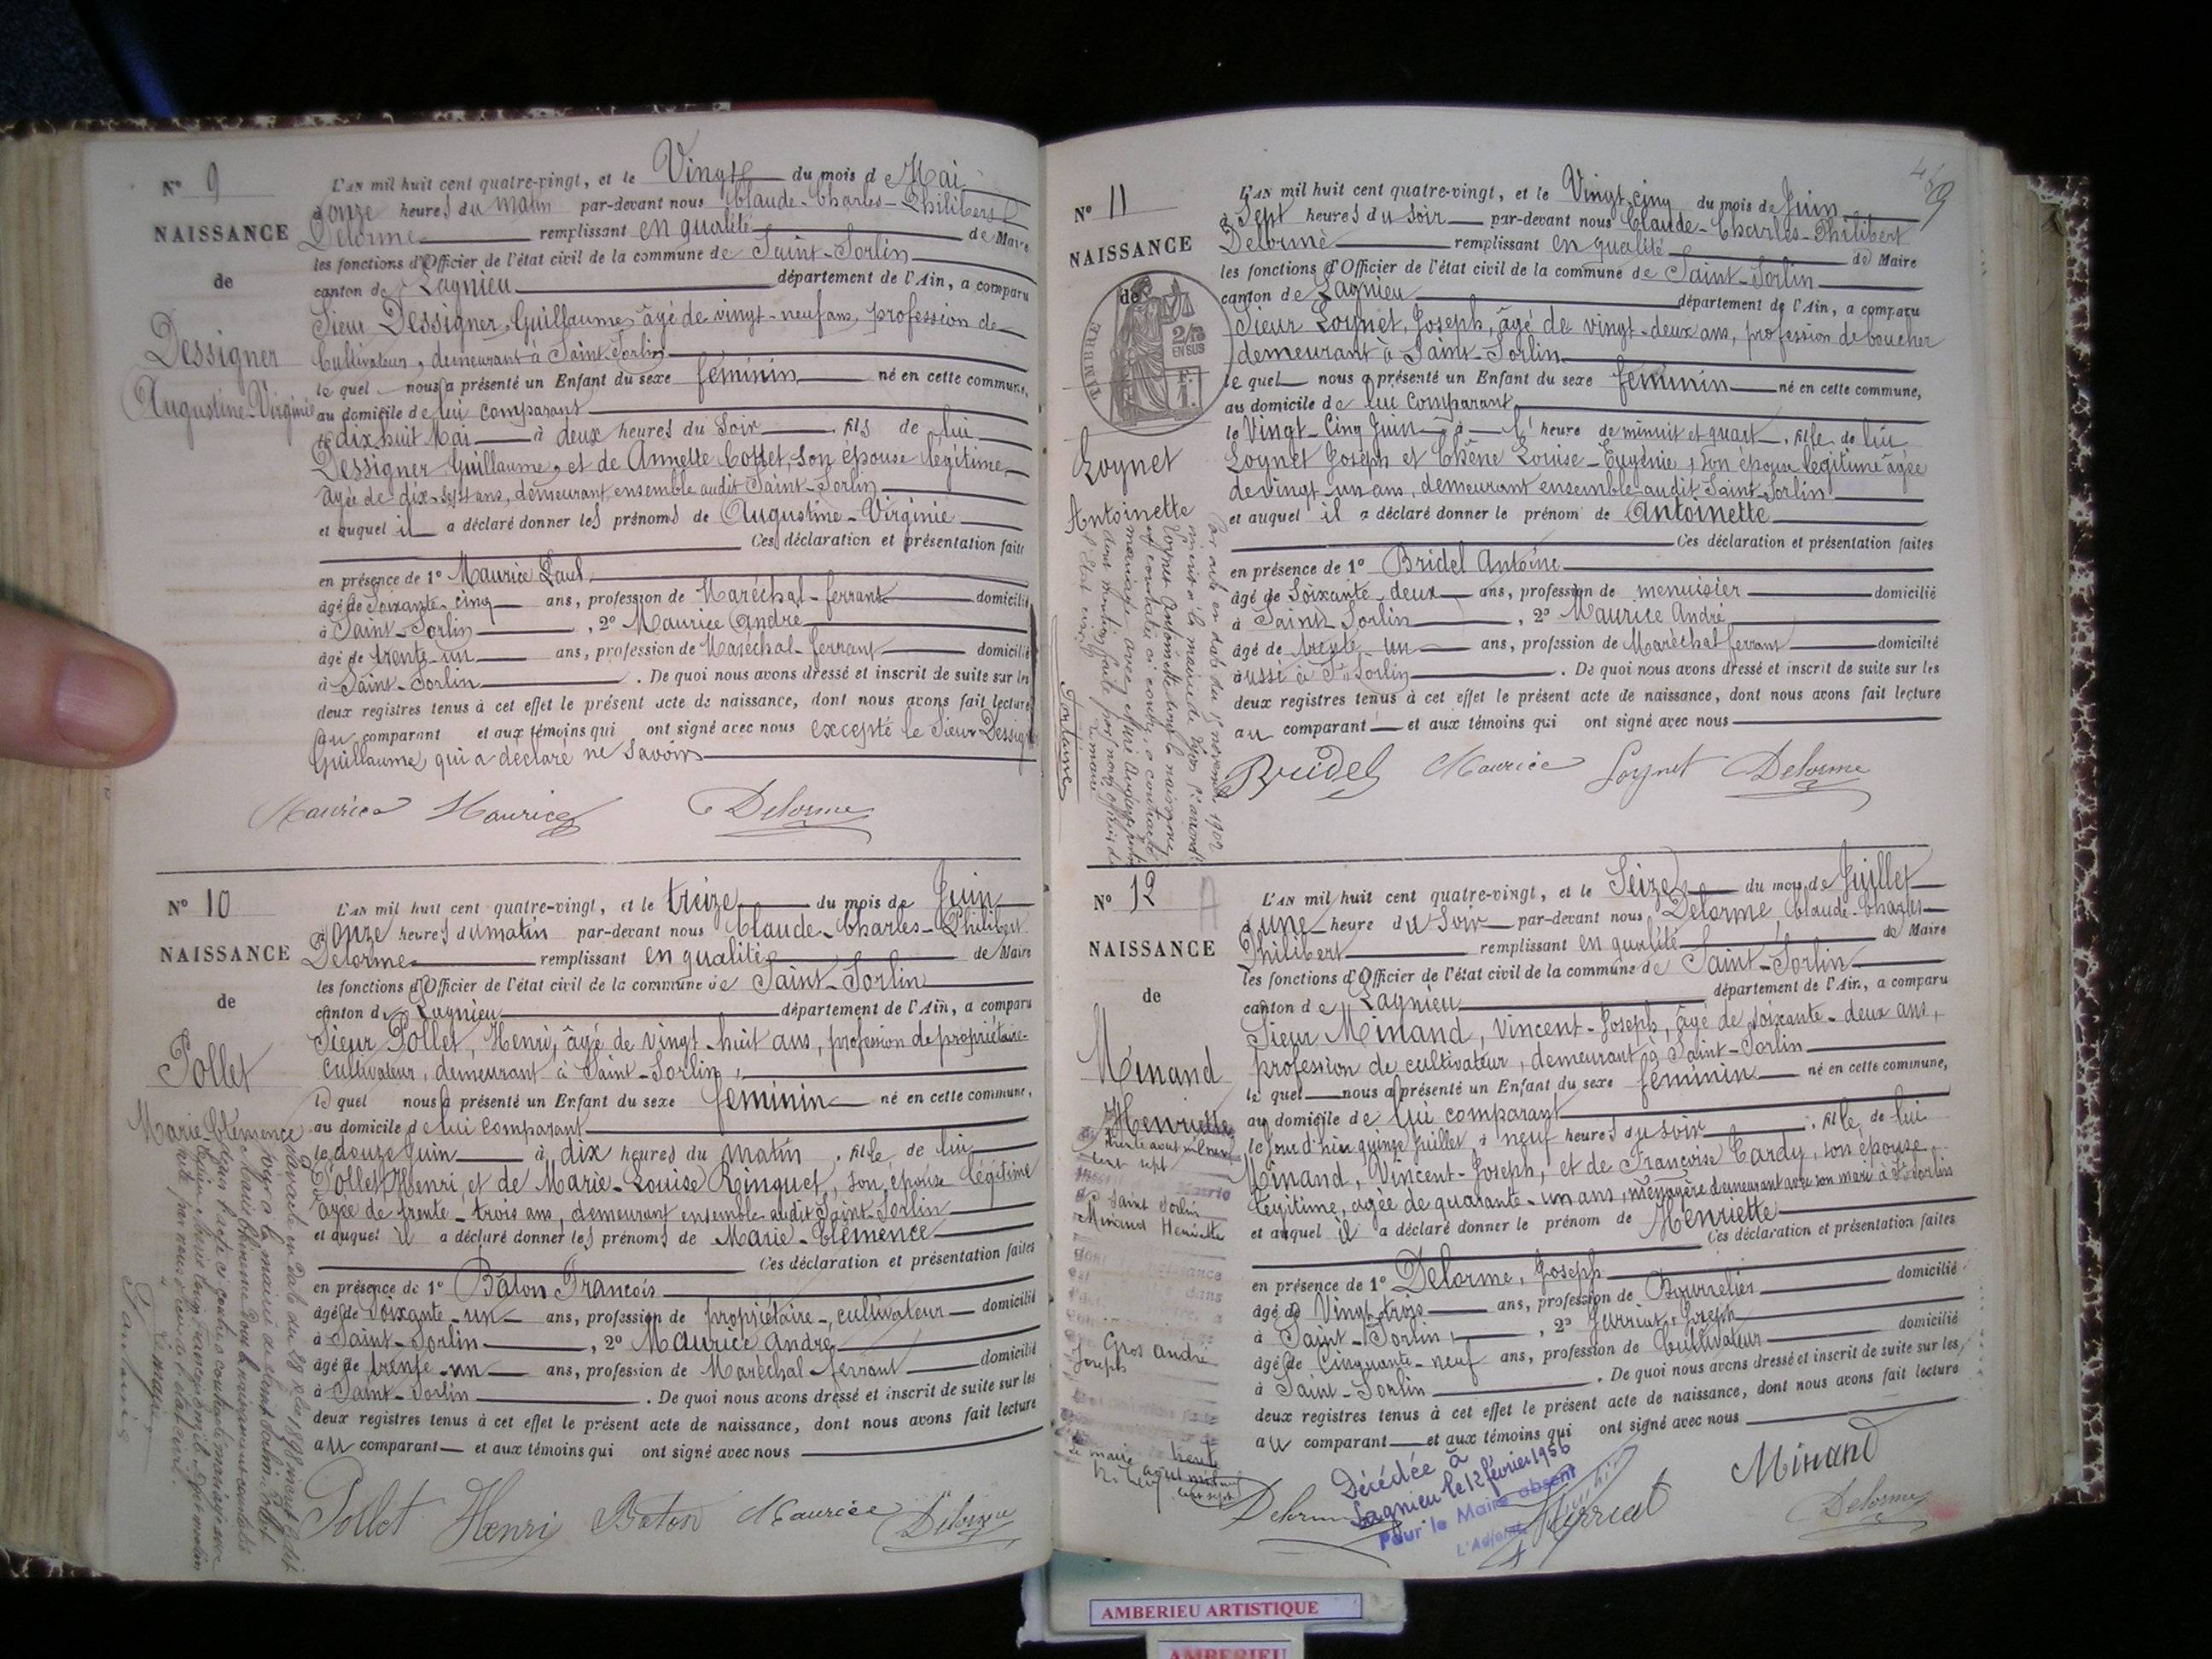 N° 9
NAISSANCE
de
Dessigner
Augustine-Virginie
L'AN mil huit cent quatre-vingt, et le Vingt du mois de Mai
à onze heures du matin par-devant nous Claude-Charles-Philibert
Delorme remplissant en qualité de Maire
les fonctions d'Officier de l'état civil de la commune de Saint-Sorlin
canton de Lagnieu département de l'Ain, a comparu
Sieur Dessigner, Guillaume, âgé de vingt-neuf ans, profession de
Cultivateur, demeurant à Saint-Sorlin
le quel nous a présenté un Enfant du sexe féminin né en cette commune,
au domicile de lui comparant
le dix huit Mai à deux heures du Soir, fils de lui
Dessigner Guillaume, et de Annette Collet, son épouse légitime,
âgée de dix-sept ans, demeurant ensemble audit Saint-Sorlin
et auquel il a déclaré donner les prénoms de Augustine-Virginie
Ces déclaration et présentation faites
en présence de 1° Maurice Paul
âgé de Soixante-cinq ans, profession de Maréchal-ferrant domicilié
à Saint-Sorlin, 2° Maurice André
âgé de trente-un ans, profession de Maréchal-ferrant domicilié
à Saint-Sorlin. De quoi nous avons dressé et inscrit de suite sur les
deux registres tenus à cet effet le présent acte de naissance, dont nous avons fait lecture
au comparant et aux témoins qui ont signé avec nous excepté le Sieur Dessig
Guillaume, qui a déclaré ne Savoir
Maurice Maurice Delorme
N° 10
NAISSANCE
de
Pollet
Marie-Clémence
L'AN mil huit cent quatre-vingt, et le treize du mois de Juin
à onze heures du matin par-devant nous Claude-Charles-Philibert
Delorme remplissant en qualité de Maire
les fonctions d'Officier de l'état civil de la commune de Saint-Sorlin
canton de Lagnieu département de l'Ain, a comparu
Sieur Pollet, Henri, âgé de vingt-huit ans, profession de propriétaire-
cultivateur, demeurant à Saint-Sorlin,
le quel nous a présenté un Enfant du sexe féminin né en cette commune,
au domicile de lui comparant
le douze Juin à dix heures du matin, fille de lui
Pollet Henri, et de Marie-Louise Ringuet, son épouse légitime
âgée de trente-trois ans, demeurant ensemble audit Saint-Sorlin
et auquel il a déclaré donner les prénoms de Marie-Clémence
Ces déclaration et présentation faites
en présence de 1° Baton François
âgé de Soixante-un ans, profession de propriétaire-cultivateur domicilié
à Saint-Sorlin, 2° Maurice André
âgé de trente-un ans, profession de Maréchal-ferrant domicilié
à Saint-Sorlin. De quoi nous avons dressé et inscrit de suite sur les
deux registres tenus à cet effet le présent acte de naissance, dont nous avons fait lecture
au comparant et aux témoins qui ont signé avec nous
Pollet Henri Baton Maurice Delorme
N° 11
NAISSANCE
de
TIMBRE
2/10
EN SUS
Loynet
Antoinette
L'AN mil huit cent quatre-vingt, et le Vingt cinq du mois de Juin
à Sept heures du Soir par-devant nous Claude-Charles-Philibert
Delorme remplissant en qualité de Maire
les fonctions d'Officier de l'état civil de la commune de Saint-Sorlin
canton de Lagnieu département de l'Ain, a comparu
Sieur Loynet, Joseph, âgé de vingt-deux ans, profession de boucher
demeurant à Saint-Sorlin
le quel nous a présenté un Enfant du sexe féminin né en cette commune,
au domicile de lui comparant
le Vingt-Cinq Juin à l'heure de minuit et quart, fille de lui
Loynet Joseph et Chêne Louise-Eugénie, son épouse légitime âgée
de vingt-un ans, demeurant ensemble audit Saint-Sorlin
et auquel il a déclaré donner le prénom de Antoinette
Ces déclaration et présentation faites
en présence de 1° Bridel Antoine
âgé de Soixante-deux ans, profession de menuisier domicilié
à Saint-Sorlin, 2° Maurice André
âgé de trente-un ans, profession de Maréchal ferrant domicilié
aussi à St-Sorlin. De quoi nous avons dressé et inscrit de suite sur les
deux registres tenus à cet effet le présent acte de naissance, dont nous avons fait lecture
au comparant et aux témoins qui ont signé avec nous
Bridel Maurice Loynet Delorme
N° 12
NAISSANCE
de
Minand
Henriette
Saint Sorlin
Minand Henriette
Gros André
Joseph
L'AN mil huit cent quatre-vingt, et le Seize du mois de Juillet
à une heure du Soir par-devant nous Delorme Claude-Charles-
Philibert remplissant en qualité de Maire
les fonctions d'Officier de l'état civil de la commune de Saint-Sorlin
canton de Lagnieu département de l'Ain, a comparu
Sieur Minand, Vincent-Joseph, âgé de soixante-deux ans,
profession de cultivateur, demeurant à Saint-Sorlin
le quel nous a présenté un Enfant du sexe féminin né en cette commune,
au domicile de lui comparant
le Jour d'hier quinze Juillet à neuf heures du soir, fille de lui
Minand, Vincent-Joseph, et de Françoise Cardy, son épouse
légitime, âgée de quarante-un ans, ménagère demeurant avec son mari à St-Sorlin
et auquel il a déclaré donner le prénom de Henriette
Ces déclaration et présentation faites
en présence de 1° Delorme, Joseph
âgé de Vingt trois ans, profession de Bourrelier domicilié
à Saint-Sorlin, 2° Jurriat, Joseph
âgé de Cinquante-neuf ans, profession de Cultivateur domicilié
à Saint-Sorlin. De quoi nous avons dressé et inscrit de suite sur les
deux registres tenus à cet effet le présent acte de naissance, dont nous avons fait lecture
au comparant et aux témoins qui ont signé avec nous
Minand
Décédée à
Lagnieu le 12 février 1956
Pour le Maire absent
L'Adjoint
Delorme Jurriat Delorme
AMBERIEU ARTISTIQUE
AMBERIEU